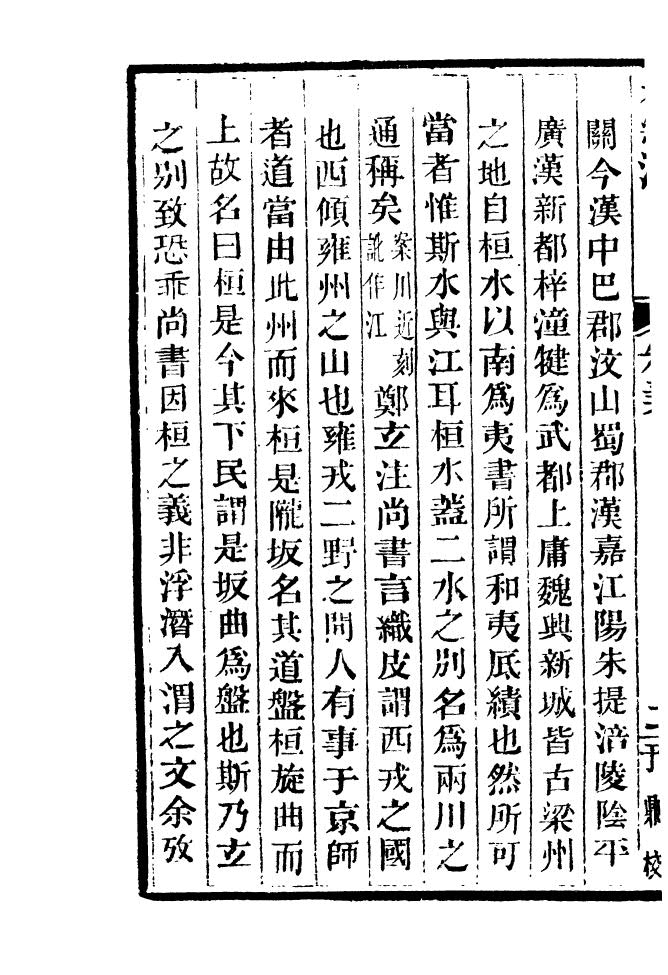 關今漢中巴郡汶山蜀郡漢嘉江陽朱提涪陵陰平
廣漢新都梓潼犍爲武都上庸魏興新城皆古梁州
之地自桓水以南爲夷書所謂和夷厎績也然所可
當者惟斯水與江耳桓水蓋二水之別名爲兩川之
通稱矣案川近刻訛作江鄭玄注尚書言織皮謂西戎之國
也西傾雍州之山也雍戎二野之間人有事于京師
者道當由此州而來桓是隴坂名其道盤桓旋曲而
上故名曰桓是今其下民謂是坂曲爲盤也斯乃玄
之別致恐乖尚書因桓之義非浮潛入渭之文余攷